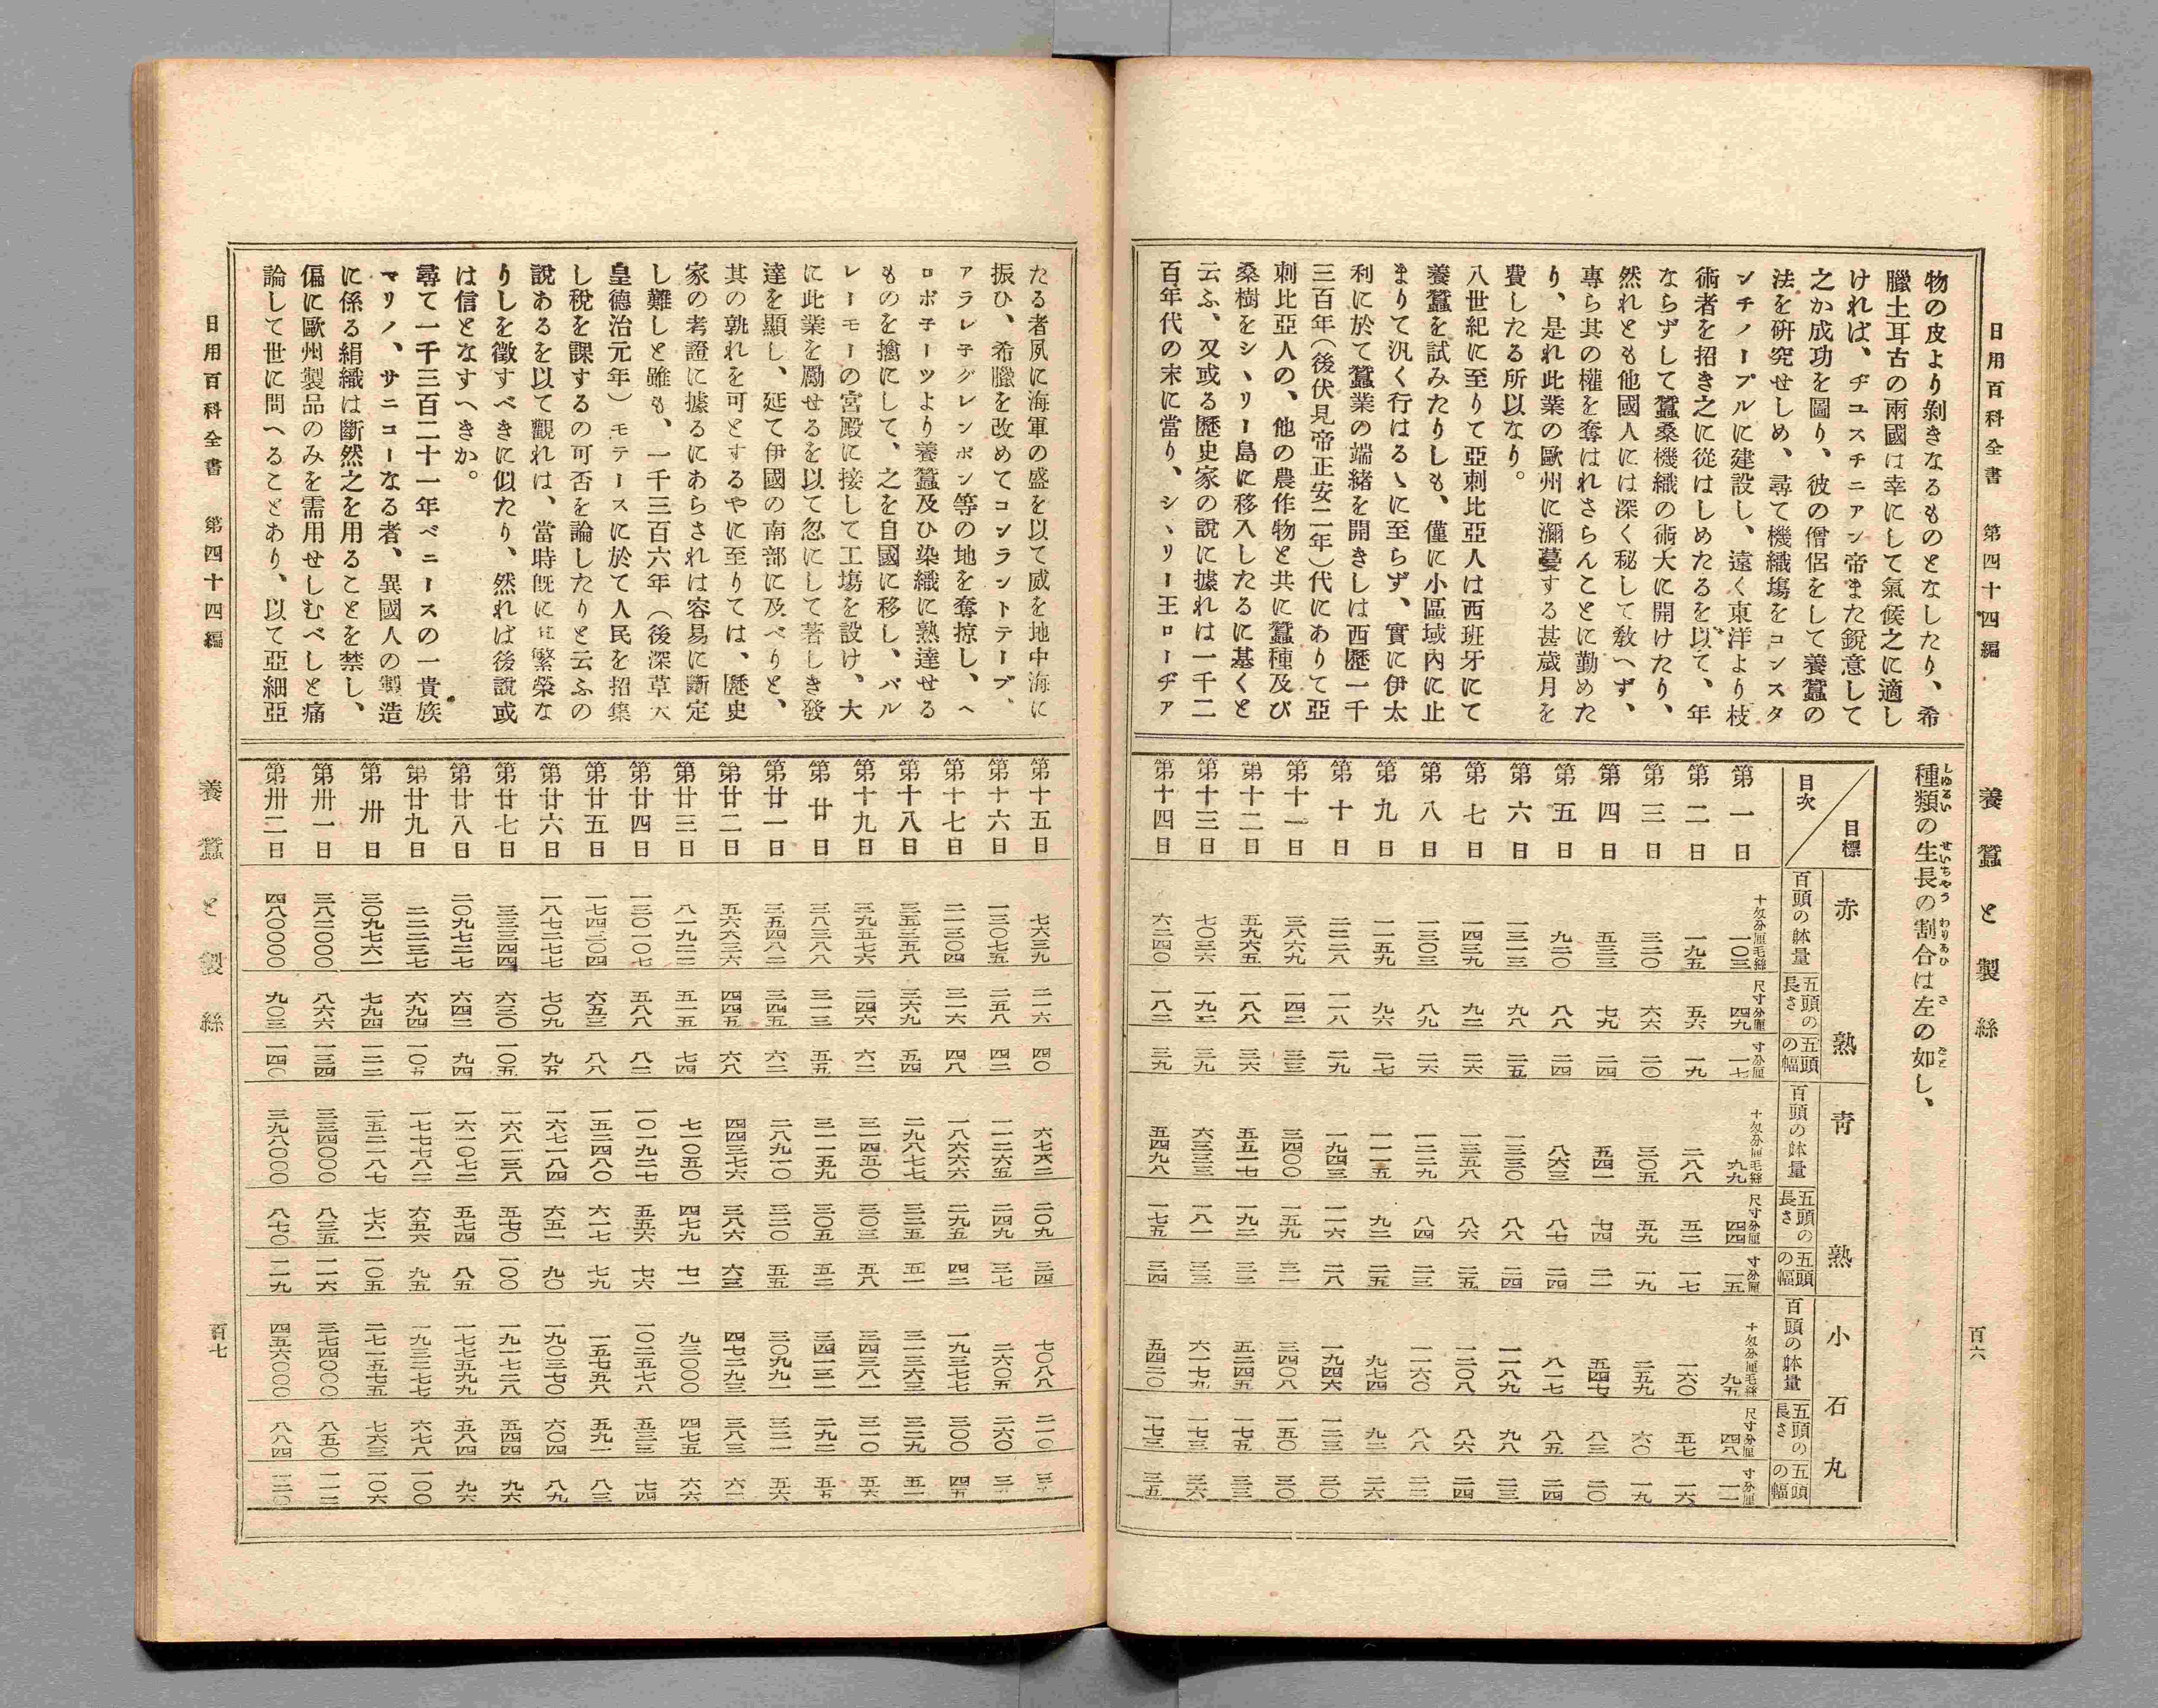 日用百科全書 第四十四編 養蠶と製絲 百六
物の皮より剝きなるものとなしたり、希
臘土耳古の兩國は幸にして氣候之に適し
ければ、ヂユスチニアン帝また銳意して
之か成功を圖り、彼の僧侶をして養蠶の
法を硏究せしめ、尋て機織塲をコンスタ
ンチノープルに建設し、遠く東洋より枝
術者を招き之に從はしめたるを以て、年
ならずして蠶桑機織の術大に開けたり、
然れとも他國人には深く秘して敎へず、
專ら其の權を奪はれさらんことに勤めた
り、是れ此業の歐州に瀰蔓する甚歲月を
費したる所以なり。
八世紀に至りて亞刺比亞人は西班牙にて
養蠶を試みたりしも、僅に小區域內に止
まりて汎く行はるゝに至らず、實に伊太
利に於て蠶業の端緖を開きしは西曆一千
三百年（後伏見帝正安二年）代にありて亞
刺比亞人の、他の農作物と共に蠶種及び
桑樹をシヽリー島に移入したるに基くと
云ふ、又或る歷史家の說に據れは一千二
百年代の末に當り、シヽリー王ローヂァ
種類の生長の割合は左の如し、
しゆるい せいちやう わりあひ さ ごと
目標 赤熟 靑熟 小石丸
目次 百頭の躰量 五頭の長さ 五頭の幅 百頭の躰量 五頭の長さ 五頭の幅 百頭の躰量 五頭の長さ 五頭の幅
十匁分厘毛絲 尺寸分厘 寸分厘 十匁分厘毛絲 尺寸分厘 寸分厘 十匁分厘毛絲 尺寸分厘 寸分厘
第一日 一〇三 四九 一七 九九 四四 一五 九五 四八 一一
第二日 一九五 五六 一九 二八八 五二 一七 一六〇 五七 一六
第三日 三二〇 六六 二〇 三〇五 五九 一九 二五九 六〇 一九
第四日 五三三 七九 二四 五四一 七四 二一 五四七 八三 二〇
第五日 九二〇 八八 二四 八六三 八七 二四 八一七 八五 二四
第六日 一三一三 九八 二五 一三三〇 八八 二四 一一八九 九八 二三
第七日 一四三九 九二 二六 一三五八 八六 二五 一二〇八 八六 二四
第八日 一三〇三 八九 二六 一二二九 八四 二三 一一六〇 八八 二二
第九日 一一五九 九六 二七 一一一五 九二 二五 九七四 九二 二六
第十日 二二二八 一一八 二九 一九四三 一一六 二八 一九四六 一二三 三〇
第十一日 三八六九 一四二 三三 三四〇〇 一五九 三一 三四〇八 一五〇 三〇
第十二日 五九六五 一八八 三六 五五一七 一九二 三二 五二四五 一七五 三三
第十三日 七〇三六 一九二 三九 六三三三 一八一 三三 六一七九 一七三 三六
第十四日 六二四〇 一八二 三九 五四九八 一七五 三四 五四二〇 一七三 三五
たる者夙に海軍の盛を以て威を地中海に
振ひ、希臘を改めてコンラントテーブ、
アラレ子グレンポン等の地を奪掠し、ヘ
ロポ子ーツより養蠶及ひ染織に熟達せる
ものを擒にして、之を自國に移し、パル
レーモーの宮殿に接して工塲を設け、大
に此業を勵せるを以て忽にして著しき發
達を顯し、延て伊國の南部に及べりと、
其の孰れを可とするやに至りては、歷史
家の考證に據るにあらされは容易に斷定
し難しと雖も、一千三百六年（後深草天
皇德治元年）モテースに於て人民を招集
し稅を課するの可否を論したりと云ふの
說あるを以て觀れは、當時旣に其繁榮な
りしを徵すべきに似たり、然れば後說或
は信となすへきか。
尋て一千三百二十一年ベニースの一貴族
マリノ、サニコーなる者、異國人の製造
に係る絹織は斷然之を用ることを禁し、
偏に歐州製品のみを需用せしむべしと痛
論して世に問へることあり、以て亞細亞
第十五日 七六三九 二一六 四〇 六七八二 二〇九 三四 七〇八八 二一〇
第十六日 一三〇七五 二五八 四二 一一二六五 二四九 三七 二六〇五 二六〇
第十七日 二一三〇四 三一六 四八 一八六六六 二九五 四二 一九三七七 三〇〇 四五
第十八日 三五三五八 三六九 五四 二九八七七 三二五 五一 三一三六三 三二九 五一
第十九日 三九五七六 二四六 六二 三一四五〇 三〇三 五八 三四三八一 三一〇 五六
第廿日 三八三八八 三一三 五五 三一一五九 三〇五 五二 三四一三一 二九二 五五
第廿一日 三五四八二 三四五 六二 二八九一〇 三二〇 五五 三〇九九一 三二一 五六
第廿二日 五六六三六 四四五 六八 四四三七六 三八六 六三 四七二九三 三八三 六一
第廿三日 八一九二二 五一五 七四 七一〇五〇 四七九 七一 九三〇〇〇 四七五 六六
第廿四日 一三〇一〇七 五八八 八二 一〇一九二七 五五六 七六 一〇二五七八 五三三 七四
第廿五日 一七四三〇四 六五三 八八 一五二四八〇 六一七 七九 一五七五八 五九一 八三
第廿六日 一八七二七七 七〇九 九五 一六七一八四 六五一 九〇 一九〇三七〇 六〇四 八九
第廿七日 三三三四四 六三〇 一〇五 一六八一三八 五七〇 一〇〇 一九一七二八 五四四 九六
第廿八日 二〇九七二七 六四二 九四 一六一〇七二 五七四 八五 一七七五九九 五八四 九六
第廿九日 二二二三七 六九四 一〇五 一七七七八二 六五六 九五 一九三二七七 六七八 一〇〇
第卅日 三〇九七六一 七九四 一二二 二五二一八七 七六一 一〇五 二七一五七五 七六三 一〇六
第卅一日 三八二〇〇〇 八六六 一三四 三三四〇〇〇 八三五 一一六 三七四〇〇〇 八五〇 一一二
第卅二日 四八〇〇〇〇 九〇三 一四〇 三九八〇〇〇 八七〇 一一九 四五六〇〇〇 八八四 一二〇
日用百科全書 第四十四編 養蠶と製絲 百七